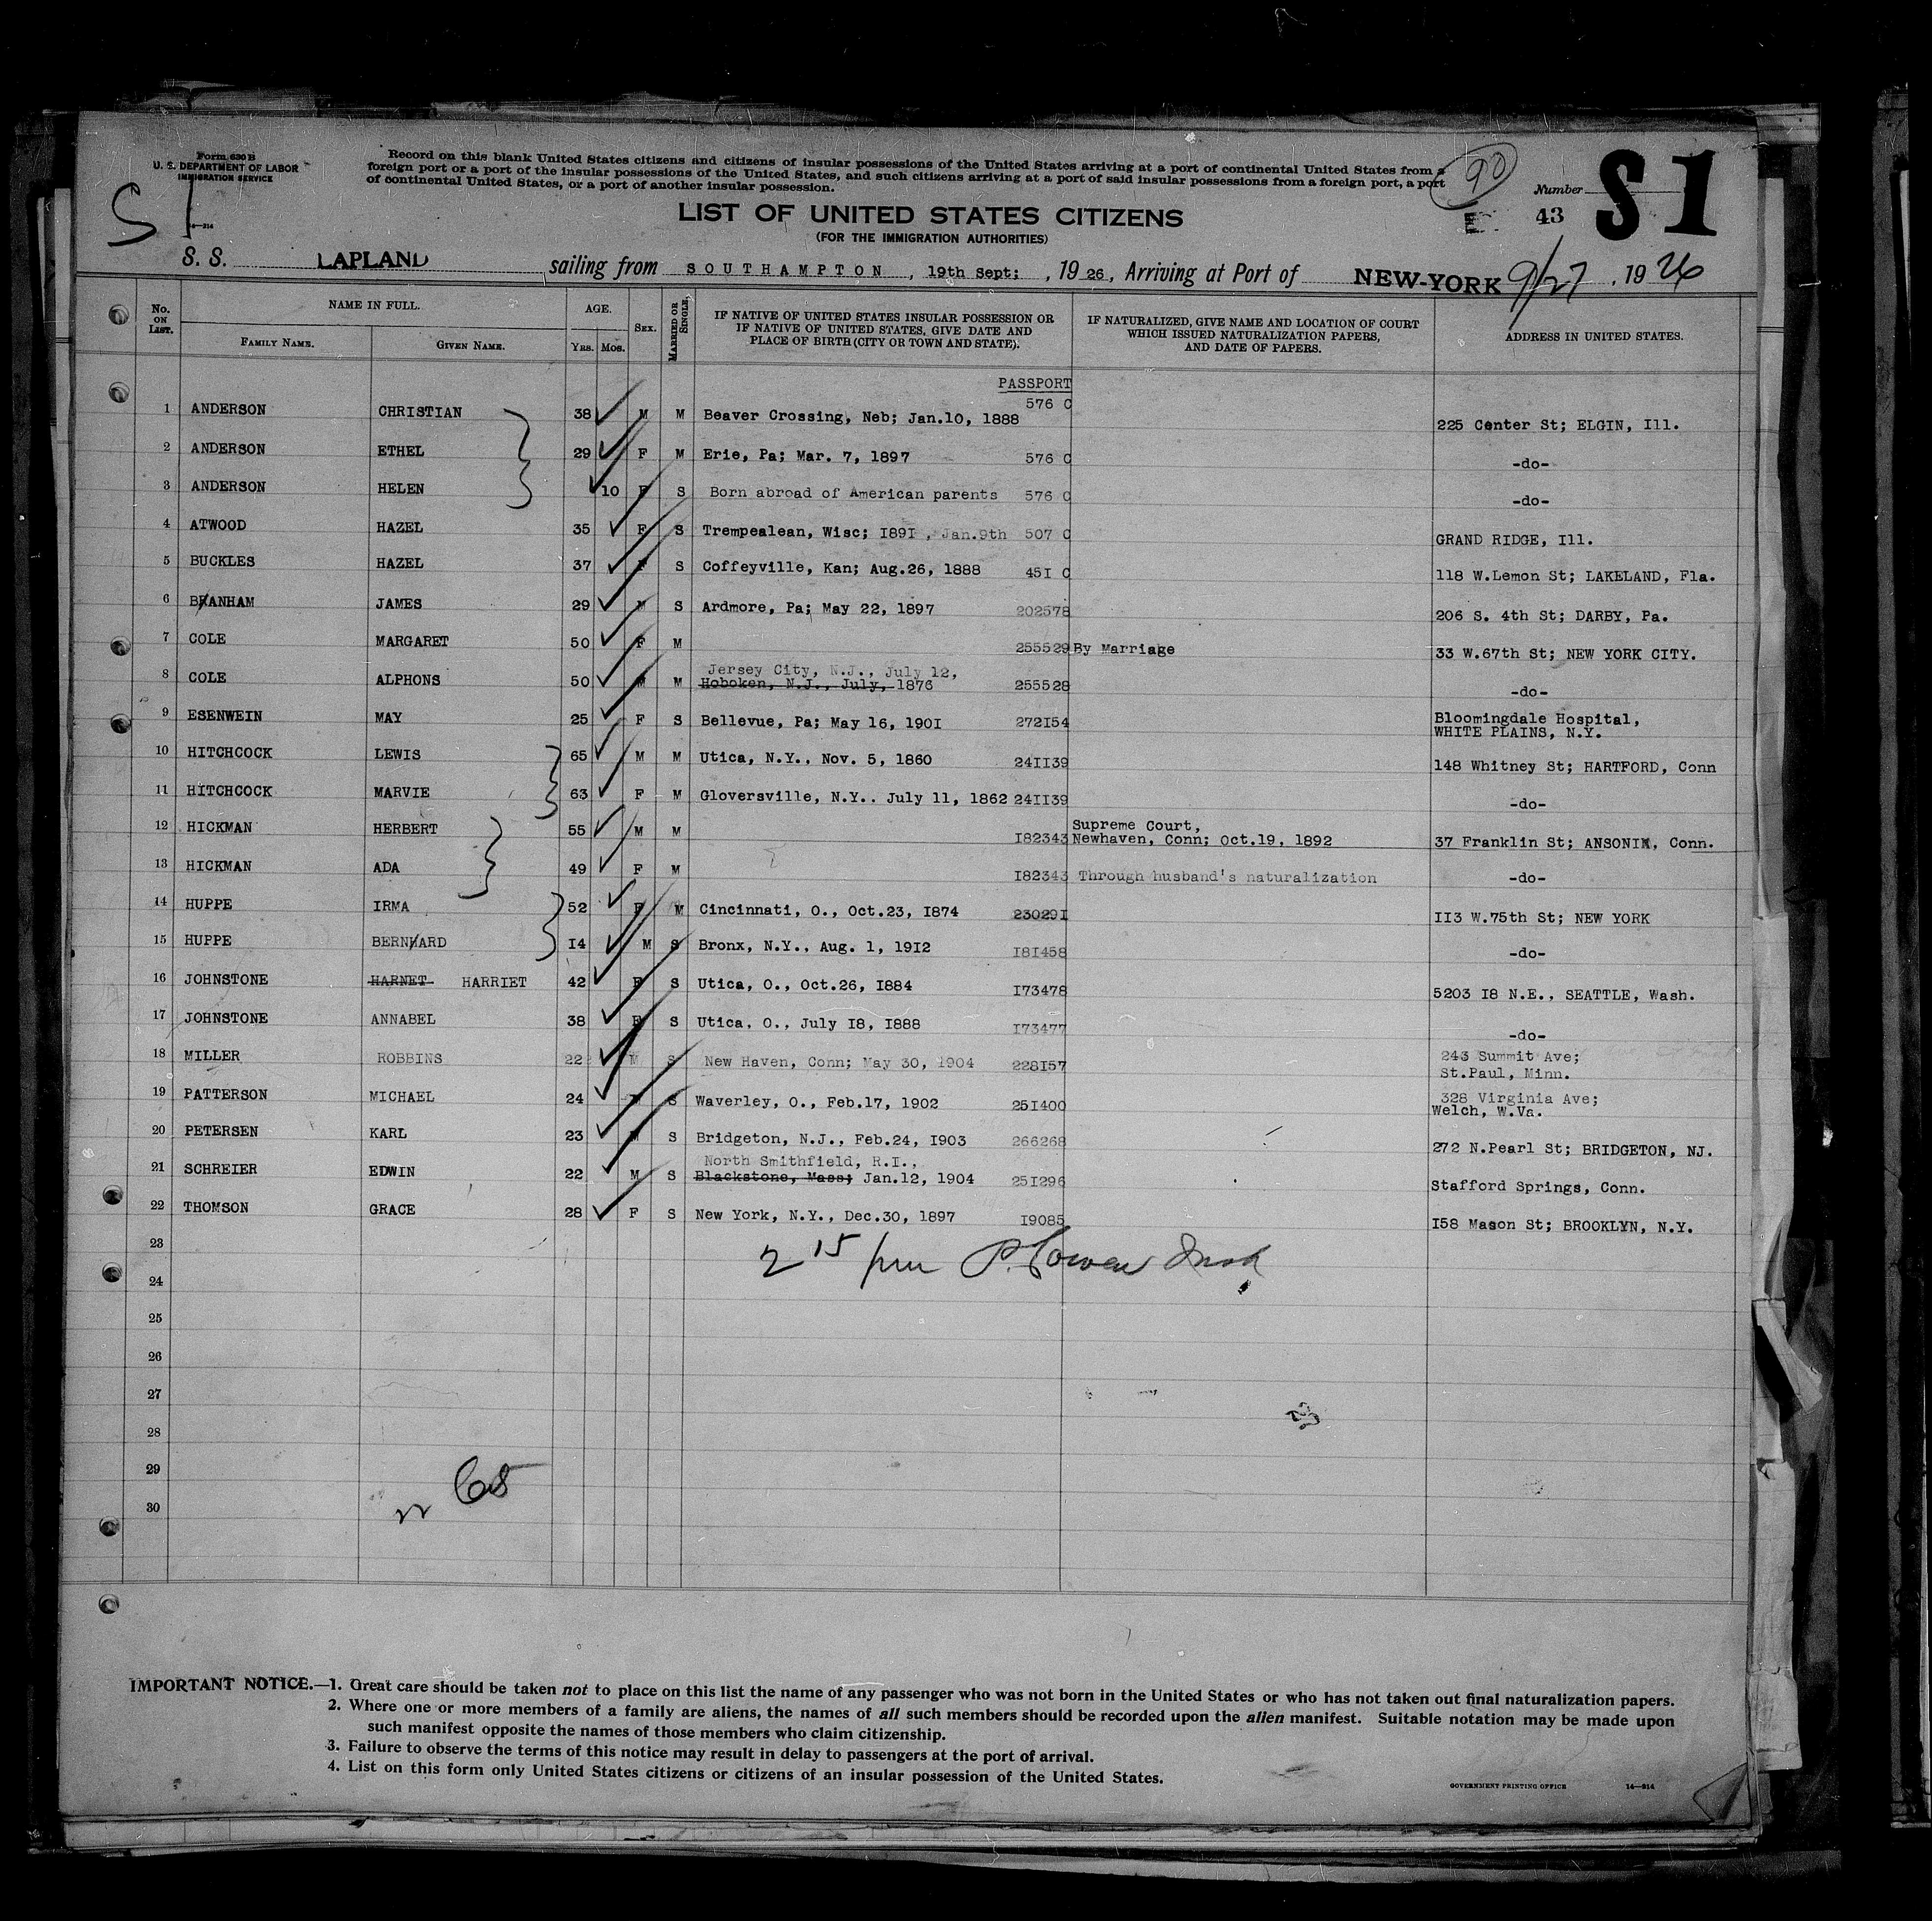 Form 630 B
U. S. DEPARTMENT OF LABOR
IMMIGRATION SERVICE
14—314
S 1
Record on this blank United States citizens and citizens of insular possessions of the United States arriving at a port of continental United States from a
foreign port or a port of the insular possessions of the United States, and such citizens arriving at a port of said insular possessions from a foreign port, a port
of continental United States, or a port of another insular possession.
90
Number
43
S1
LIST OF UNITED STATES CITIZENS
(FOR THE IMMIGRATION AUTHORITIES)
S. S. LAPLAND sailing from SOUTHAMPTON, 19th Sept; , 1926, Arriving at Port of NEW-YORK 9/27, 1926
No. ON LIST. NAME IN FULL. FAMILY NAME. GIVEN NAME. AGE. YRS. MOS. SEX. MARRIED OR SINGLE. IF NATIVE OF UNITED STATES INSULAR POSSESSION OR IF NATIVE OF UNITED STATES, GIVE DATE AND PLACE OF BIRTH (CITY OR TOWN AND STATE). IF NATURALIZED, GIVE NAME AND LOCATION OF COURT WHICH ISSUED NATURALIZATION PAPERS, AND DATE OF PAPERS. ADDRESS IN UNITED STATES.
PASSPORT
1 ANDERSON CHRISTIAN 38 M M Beaver Crossing, Neb; Jan.10, 1888 576 C 225 Center St; ELGIN, Ill.
2 ANDERSON ETHEL 29 F M Erie, Pa; Mar. 7, 1897 576 C -do-
3 ANDERSON HELEN 10 F S Born abroad of American parents 576 C -do-
4 ATWOOD HAZEL 35 F S Trempealean, Wisc; I89I , Jan.9th 507 C GRAND RIDGE, Ill.
5 BUCKLES HAZEL 37 F S Coffeyville, Kan; Aug.26, 1888 45I C 118 W.Lemon St; LAKELAND, Fla.
6 BRANHAM JAMES 29 M S Ardmore, Pa; May 22, 1897 202578 206 S. 4th St; DARBY, Pa.
7 COLE MARGARET 50 F M 255529 By Marriage 33 W.67th St; NEW YORK CITY.
Jersey City, N.J., July 12,
8 COLE ALPHONS 50 M M Hoboken, N.J., July, 1876 255528 -do-
9 ESENWEIN MAY 25 F S Bellevue, Pa; May 16, 190I 272I54 Bloomingdale Hospital,
WHITE PLAINS, N.Y.
10 HITCHCOCK LEWIS 65 M M Utica, N.Y., Nov. 5, 1860 24II39 148 Whitney St; HARTFORD, Conn
11 HITCHCOCK MARVIE 63 F M Gloversville, N.Y.. July 11, 1862 24II39 -do-
Supreme Court,
12 HICKMAN HERBERT 55 M M I82343 Newhaven, Conn; Oct.19, 1892 37 Franklin St; ANSONIA, Conn.
13 HICKMAN ADA 49 F M I82343 Through husband's naturalization -do-
14 HUPPE IRMA 52 F M Cincinnati, O., Oct.23, I874 23029I II3 W.75th St; NEW YORK
15 HUPPE BERNHARD I4 M S Bronx, N.Y., Aug. 1, 19I2 I8I458 -do-
16 JOHNSTONE HARNET HARRIET 42 F S Utica, O., Oct.26, I884 I73478 5203 I8 N.E., SEATTLE, Wash.
17 JOHNSTONE ANNABEL 38 F S Utica, O., July I8, I888 I73477 -do-
18 MILLER ROBBINS 22 M S New Haven, Conn; May 30, 1904 228I57 243 Summit Ave;
St.Paul, Minn.
19 PATTERSON MICHAEL 24 M S Waverley, O., Feb.17, 1902 25I400 328 Virginia Ave;
Welch, W.Va.
20 PETERSEN KARL 23 M S Bridgeton, N.J., Feb.24, I903 266268 272 N.Pearl St; BRIDGETON, NJ.
North Smithfield, R.I.,
21 SCHREIER EDWIN 22 M S Blackstone, Mass; Jan.12, 1904 25I296 Stafford Springs, Conn.
22 THOMSON GRACE 28 F S New York, N.Y., Dec.30, 1897 I9085 I58 Mason St; BROOKLYN, N.Y.
23
2 15 pm P.
24
25
26
27
28
29
30
68
22
IMPORTANT NOTICE.—1. Great care should be taken not to place on this list the name of any passenger who was not born in the United States or who has not taken out final naturalization papers.
2. Where one or more members of a family are aliens, the names of all such members should be recorded upon the alien manifest. Suitable notation may be made upon
such manifest opposite the names of those members who claim citizenship.
3. Failure to observe the terms of this notice may result in delay to passengers at the port of arrival.
4. List on this form only United States citizens or citizens of an insular possession of the United States.
GOVERNMENT PRINTING OFFICE 14—314